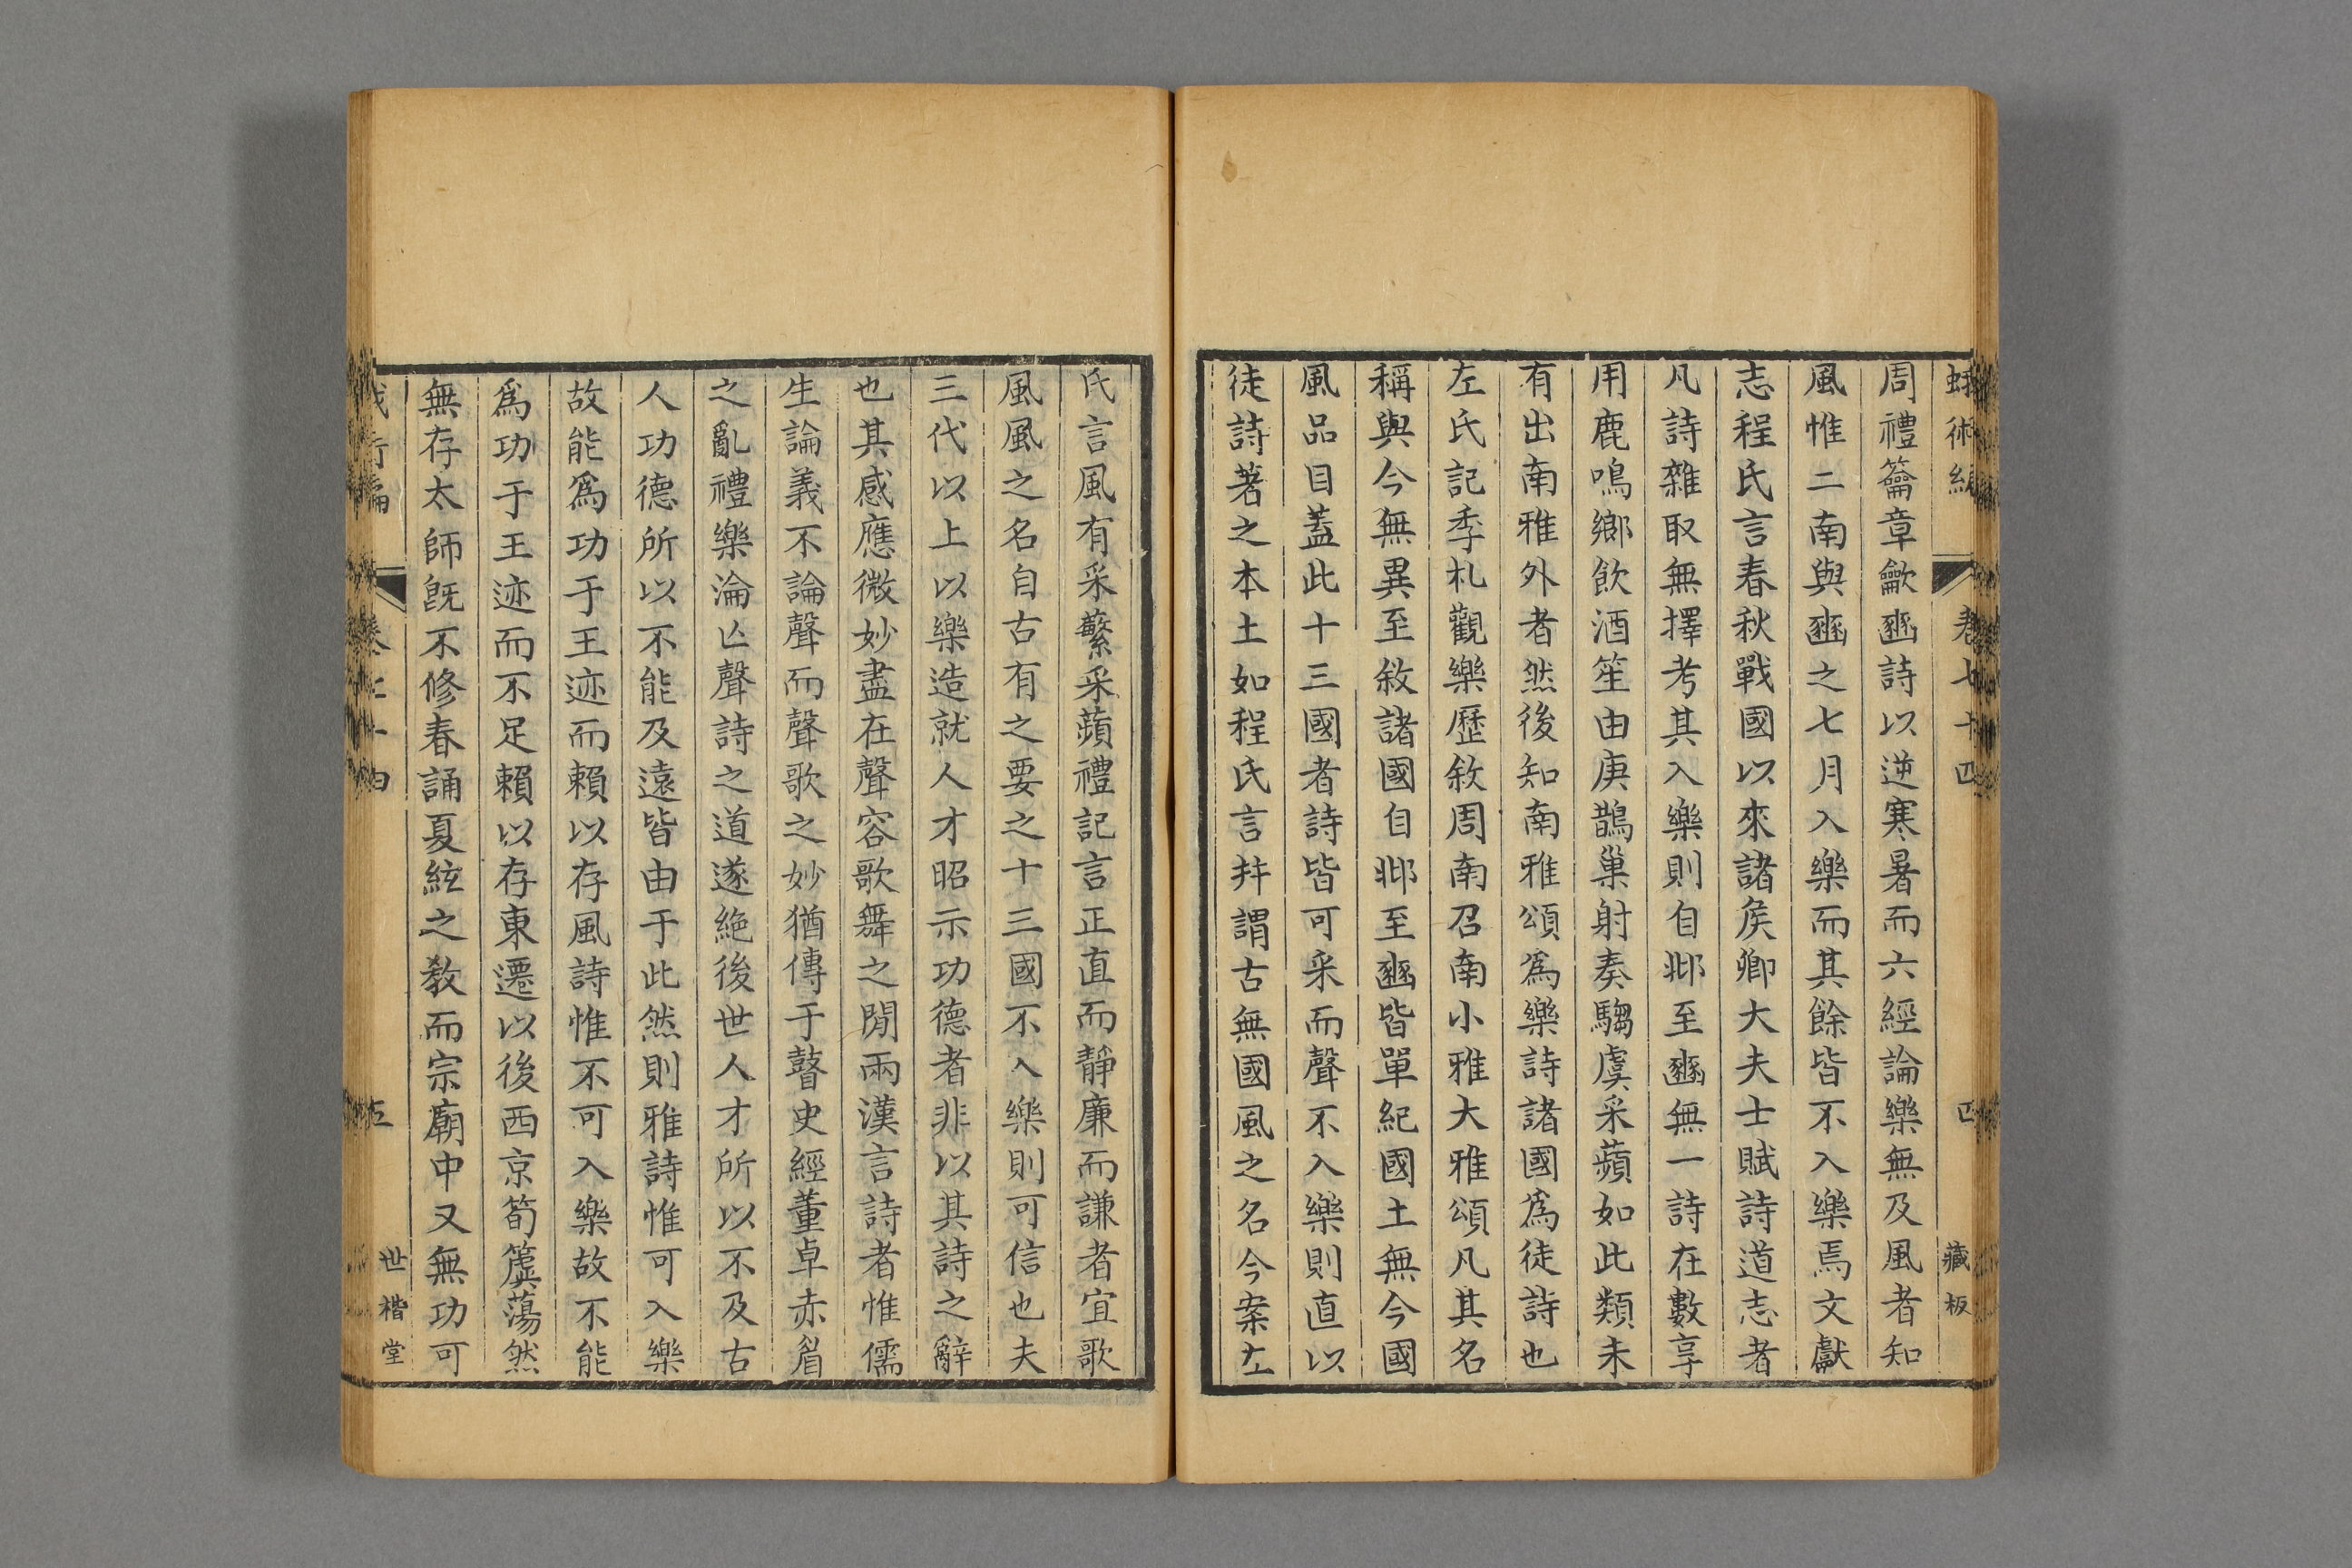 蛾術編 卷七十四 四 藏板
周禮籥章龡豳詩以逆寒暑而六經論樂無及風者知
風惟二南與豳之七月入樂而其餘皆不入樂焉文獻
志程氏言春秋戰國以來諸矦卿大夫士賦詩道志者
凡詩雜取無擇考其入樂則自邶至豳無一詩在數享
用鹿鳴鄉飲酒笙由庚鵲巢射奏騶虞采蘋如此類未
有出南雅外者然後知南雅頌爲樂詩諸國爲徒詩也
左氏記季札觀樂歷敘周南召南小雅大雅頌凡其名
稱與今無異至敘諸國自邶至豳皆單紀國土無今國
風品目蓋此十三國者詩皆可采而聲不入樂則直以
徒詩著之本土如程氏言幷謂古無國風之名今案左
氏言風有采蘩采蘋禮記言正直而靜廉而謙者宜歌
風風之名自古有之要之十三國不入樂則可信也夫
三代以上以樂造就人才昭示功德者非以其詩之辭
也其感應微妙盡在聲容歌舞之閒兩漢言詩者惟儒
生論義不論聲而聲歌之妙猶傳于瞽史經董卓赤眉
之亂禮樂淪亾聲詩之道遂絕後世人才所以不及古
人功德所以不能及遠皆由于此然則雅詩惟可入樂
故能爲功于王迹而賴以存風詩惟不可入樂故不能
爲功于王迹而不足賴以存東遷以後西京筍簴蕩然
無存太師旣不修春誦夏絃之教而宗廟中又無功可
五 世楷堂